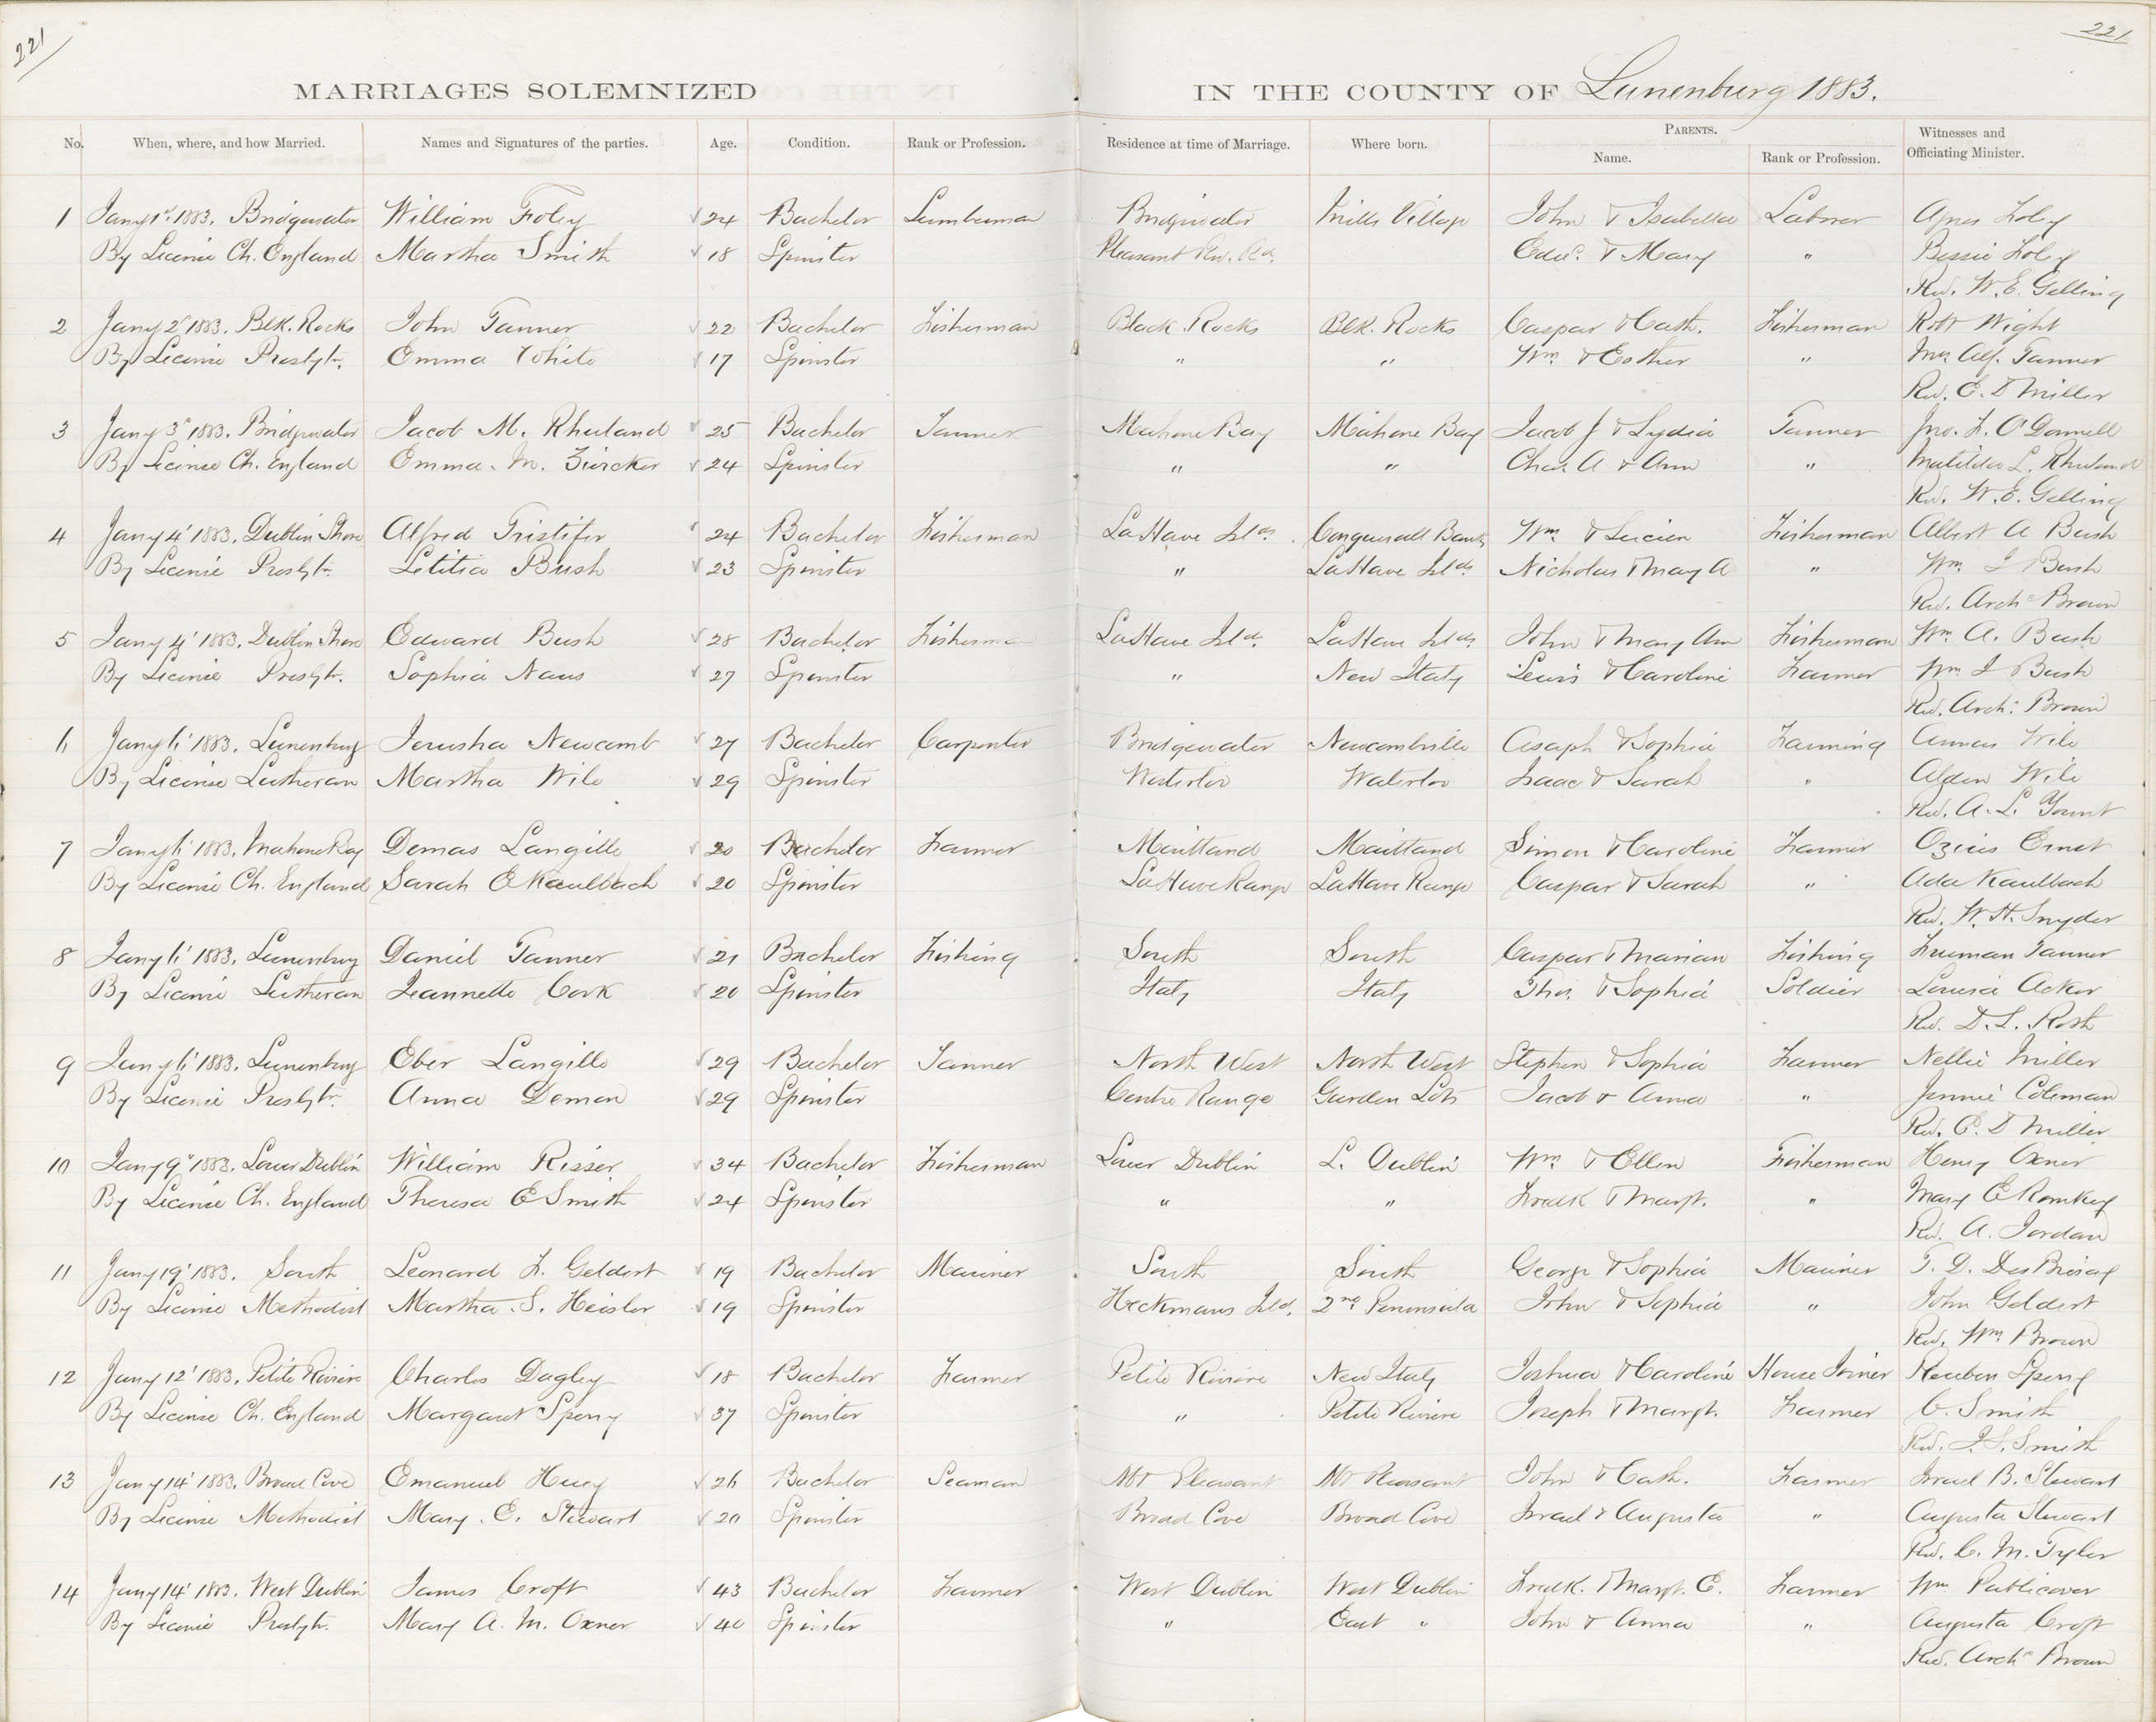 221
221
MARRIAGES SOLEMNIZED IN THE COUNTY OF Lunenburg 1883.
No. When, where, and how Married. Names and Signatures of the parties. Age. Condition. Rank or Profession. Residence at time of Marriage. Where born. PARENTS. Name. Rank or Profession. Witnesses and Officiating Minister.
1 Jany 1st 1883. Bridgewater William Foley 24 Bachelor Lumberman Bridgewater Mills Village John & Isabella Laborer Agnes Foley
By License Ch. England Martha Smith 18 Spinster Pleasant Riv. Rd. Edwd. & Mary " Bessie Foley
Rev. W. E. Gelling
2 Jany 2' 1883. Blk. Rocks John Tanner 22 Bachelor Fisherman Black Rocks Blk. Rocks Caspar & Cath. Fisherman Robt Wight
By License Presbytr. Emma White 17 Spinster " " Wm & Esther " Mrs Alf. Tanner
Rev. E. D Miller
3 Jany 3' 1883. Bridgewater Jacob M. Rhuland 25 Bachelor Tanner Mahone Bay Mahone Bay Jacob J & Lydia Tanner Jno. F. O'Donnell
By License Ch. England Emma. M. Zwicker 24 Spinster " " Chas. A & Ann " Matilda L. Rhuland
Rev. W. E. Gelling
4 Jany 4' 1883. Dublin Shore Alfred Tristifer 24 Bachelor Fisherman LaHave Ilds. Conquerall Bank Wm & Lucien Fisherman Albert A Bush
By License Presbytr. Letitia Bush 23 Spinster " LaHave Ilds. Nicholas & Mary A " Wm. J Bush
Rev. Archd Brown
5 Jany 4' 1883. Dublin Shore Edward Bush 28 Bachelor Fisherman LaHave Ild. LaHave Ilds John & Mary Ann Fisherman Wm. A. Bush
By License Presbytr. Sophia Naus 27 Spinster " New Italy Lewis & Caroline Farmer Wm J Bush
Rev. Archd. Brown
6 Jany 6' 1883. Lunenburg Jerusha Newcomb 27 Bachelor Carpenter Bridgewater Newcombville Asaph & Sophia Farming Annas Wile
By License Lutheran Martha Wile 29 Spinster Waterloo Waterloo Isaac & Sarah " Alden Wile
Rev. A. L. Yount
7 Jany 6' 1883. Mahone Bay Demas Langille 20 Bachelor Farmer Maitland Maitland Simon & Caroline Farmer Ozias Ernst
By License Ch. England Sarah E Kaulbach 20 Spinster LaHave Range LaHave Range Caspar & Sarah " Ada Kaulbach
Rev. W. H. Snyder
8 Jany 6' 1883. Lunenburg Daniel Tanner 21 Bachelor Fishing South South Caspar & Marian Fishing Freeman Tanner
By License Lutheran Jeannette Cork 20 Spinster Italy Italy Thos. & Sophia Soldier Louisa Acker
Rev. D. L. Roth
9 Jany 6' 1883. Lunenburg Eber Langille 29 Bachelor Tanner North West North West Stephen & Sophia Farmer Nellie Miller
By License Presbytr. Anna Demon 29 Spinster Centre Range Garden Lots Jacob & Anna " Jennie Coleman
Rev. E. D Miller
10 Jany 9' 1883. Lower Dublin William Risser 34 Bachelor Fisherman Lower Dublin L. Dublin Wm & Ellen Fisherman Henry Oxner
By License Ch. England Theresa E Smith 24 Spinster " " Fredk & Margt. " Mary E Romkey
Rev. A. Jordan
11 Jany 19' 1883. South Leonard F. Geldert 19 Bachelor Mariner South South George & Sophia Mariner T. D. DesBrisay
By License Methodist Martha. S. Heisler 19 Spinster Heckmans Ild. 2nd Peninsula John & Sophia " John Geldert
Rev. Wm Brown
12 Jany 12' 1883. Petite Riviere Charles Dagley 18 Bachelor Farmer Petite Riviere New Italy Joshua & Caroline House Joiner Reuben Sperry
By License Ch. England Margaret Sperry 37 Spinster " Petite Riviere Joseph & Margt. Farmer C. Smith
Rev. J. S. Smith
13 Jany 14' 1883. Broad Cove Emanuel Huey 26 Bachelor Seaman Mt Pleasant Mt Pleasant John & Cath. Farmer Israel B. Stewart
By License Methodist Mary. E. Stewart 20 Spinster Broad Cove Broad Cove Israel & Augusta " Augusta Stewart
Rev. C. M. Tyler
14 Jany 14' 1883. West Dublin James Croft 43 Bachelor Farmer West Dublin West Dublin Fredk. & Margt. E. Farmer Wm Publicover
By License Presbytr. Mary A. M. Oxner 40 Spinster " East " John & Anna " Augusta Croft
Rev. Archd Brown